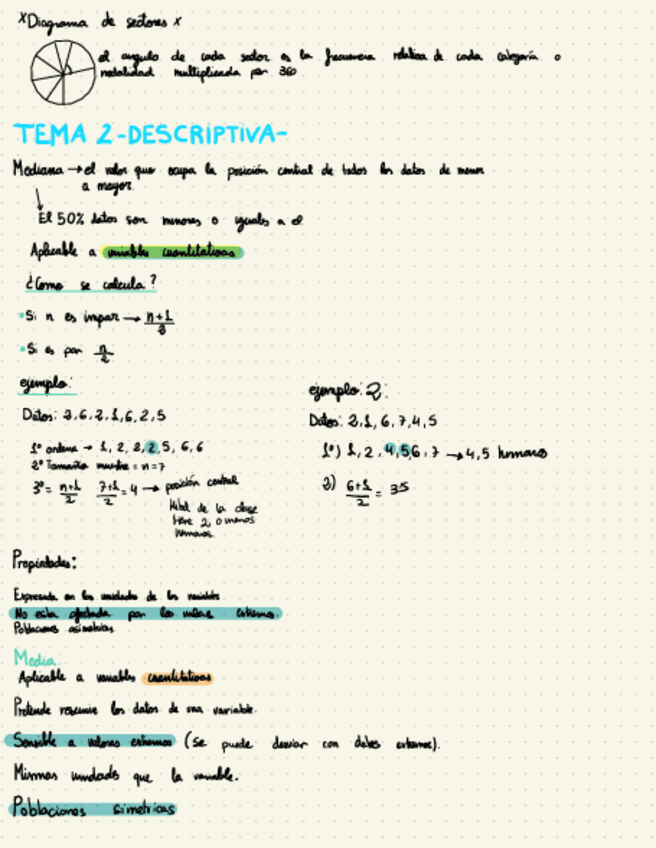 *Diagrama de sectores *
el angulo de cada sector es la frecuencia relativa de cada categoría o
modalidad multiplicada por 360
TEMA 2-DESCRIPTIVA-
Mediana → el valor que ocupa la posición central de todos los datos de menor
a mayor
El 50% datos son menores o iguales a el
Aplicable a variables cuantitativas
¿Como se calcula?
• Si n es impar → n+1/2
• Si es par n/2
ejemplo:
Datos: 2,6,2,1,6,2,5
1º ordena → 1, 2, 2, 2, 5, 6, 6
2º Tamaño muestra = n=7
3º= n+1/2 7+1/2 = 4 → posición central
Mitad de la clase
tiene 2 o menos
hermanos
ejemplo 2:
Datos: 2,1,6,7,4,5
1º) 1, 2, 4,5 6, 7 → 4,5 hermanos
2) 6+1/2 = 3'5
Propiedades:
Expresada en las unidades de la variable
No esta afectada por los valores extremos.
Poblaciones asimetricas
Media
Aplicable a variables cuantitativas
Pretende resumir los datos de una variable.
Sensible a valores extremos (se puede desviar con datos extremos).
Mismas unidades que la variable.
Poblaciones simetricas